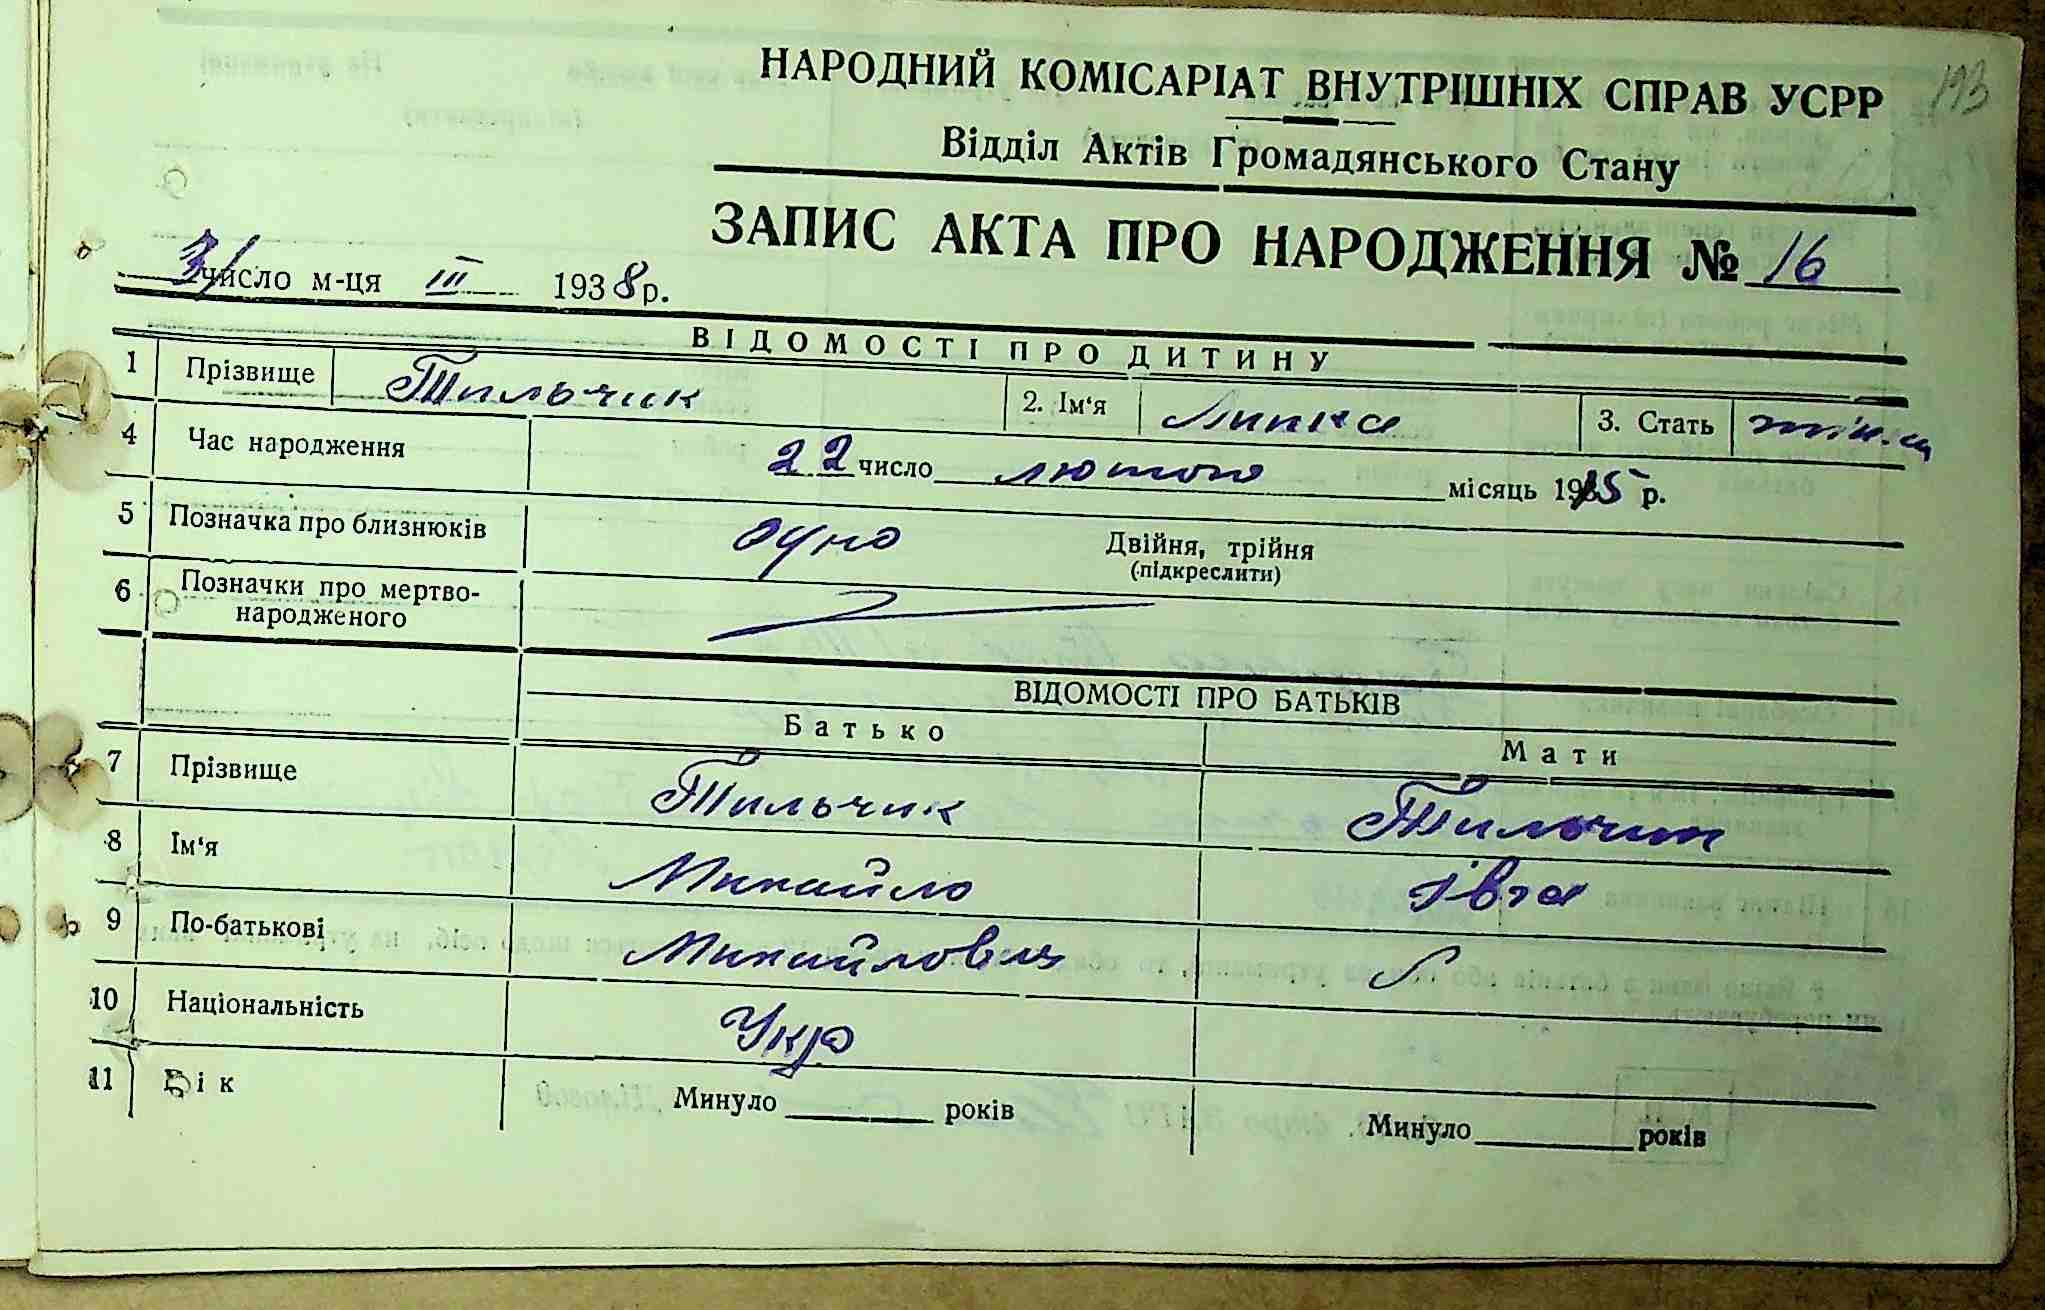 193
НАРОДНИЙ КОМІСАРІАТ ВНУТРІШНІХ СПРАВ УСРР
Відділ Актів Громадянського Стану
ЗАПИС АКТА ПРО НАРОДЖЕННЯ № 16
3/ число м-ця III 1938 р.
ВІДОМОСТІ ПРО ДИТИНУ
1 Прізвище Тильчик 2. Ім'я 3. Стать
4 Час народження 22 число лютого місяць 1915 р.
5 Позначка про близнюків одно Двійня, трійня
(підкреслити)
6 Позначки про мертво-
народженого
ВІДОМОСТІ ПРО БАТЬКІВ
Батько Мати
7 Прізвище Тильчик Тильчик
8 Ім'я Михайло Івга
9 По-батькові Михайлович
10 Національність Укр
11 Вік Минуло років Минуло років